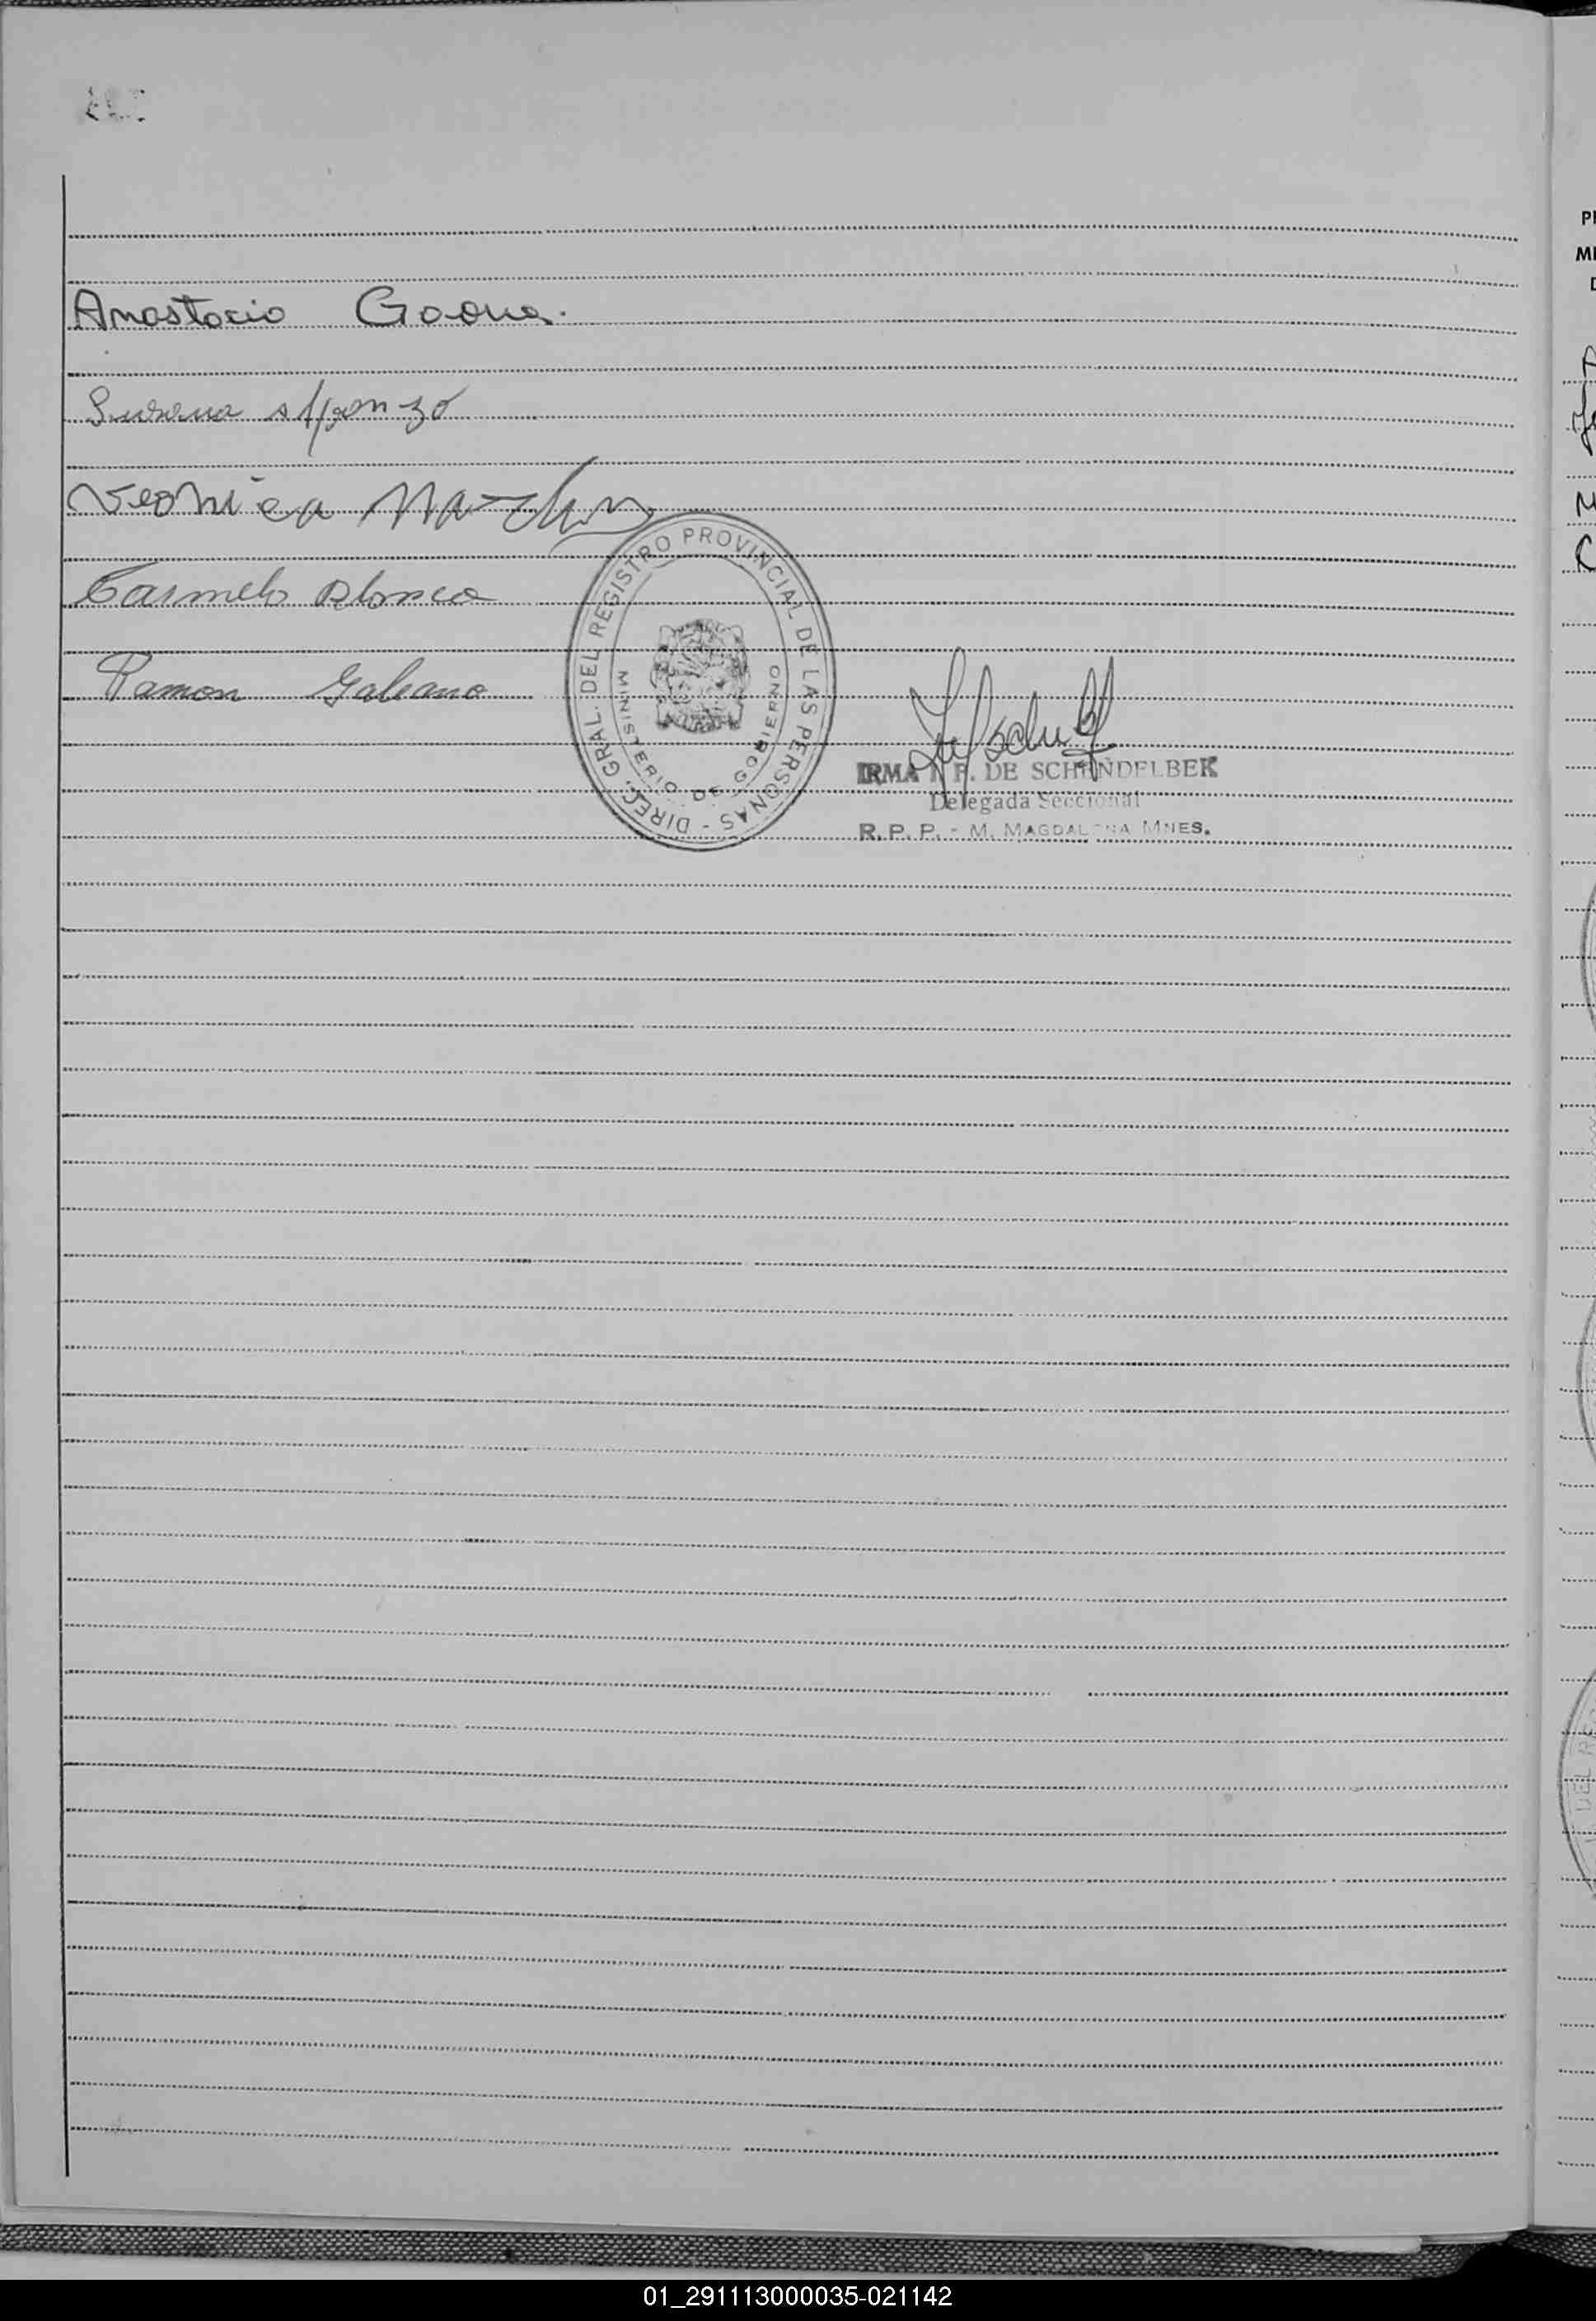 Anastacio Gaona.
Susana Alfonzo
Carmelo Blanco
Ramon Galeano
DIREC. GRAL. DEL REGISTRO PROVINCIAL DE LAS PERSONAS -
MINISTERIO DE GOBIERNO
DE SCHENDELBEK
Delegada Seccional
R. P. P. - M. MAGDALENA MNES.
01_291113000035-021142